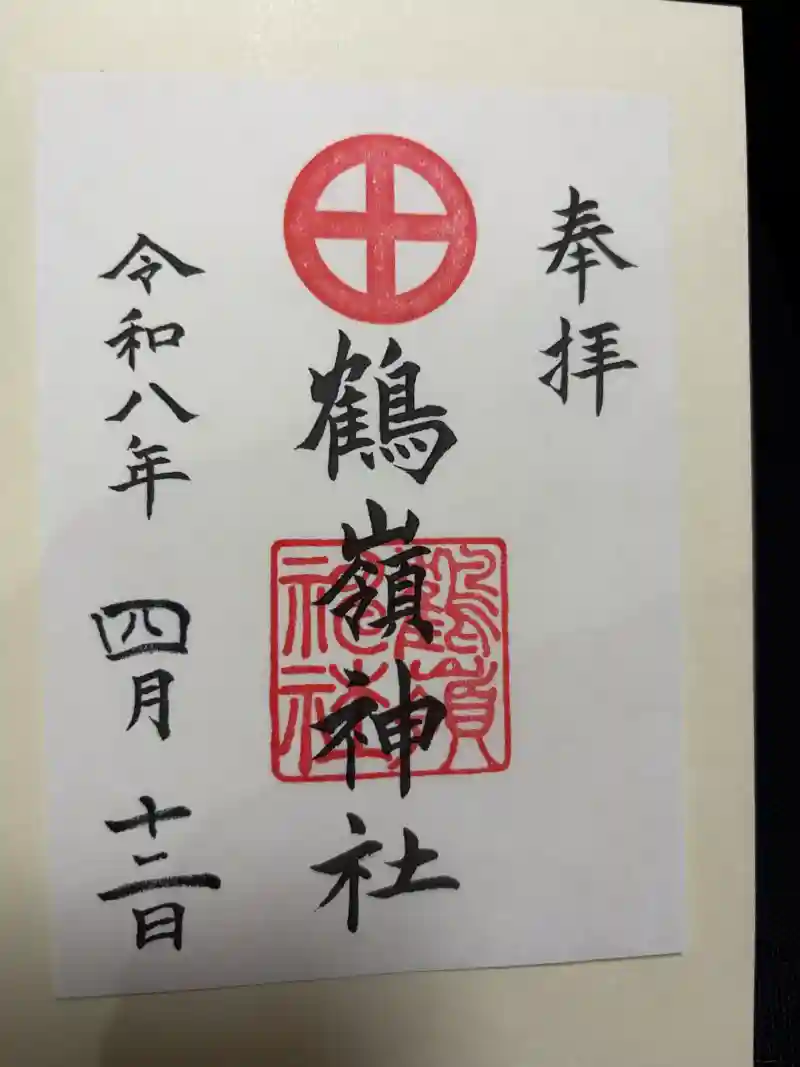 奉拝
鶴嶺神社
鶴嶺神社
令和八年 四月 十二日